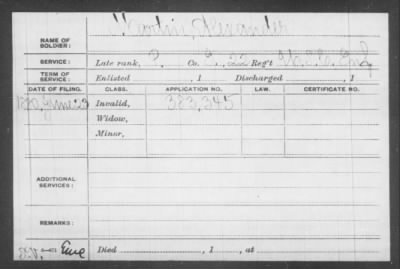 NAME OF SOLDIER: Alexander
SERVICE: Late rank, P. Co. 22 Reg't U.S.C. Inf
TERM OF SERVICE: Enlisted , 1 Discharged , 1
DATE OF FILING. CLASS. APPLICATION NO. LAW. CERTIFICATE NO.
1880, June 29 Invalid, 383,345
Widow,
Minor,
ADDITIONAL SERVICES:
REMARKS:
Died , 1 , at